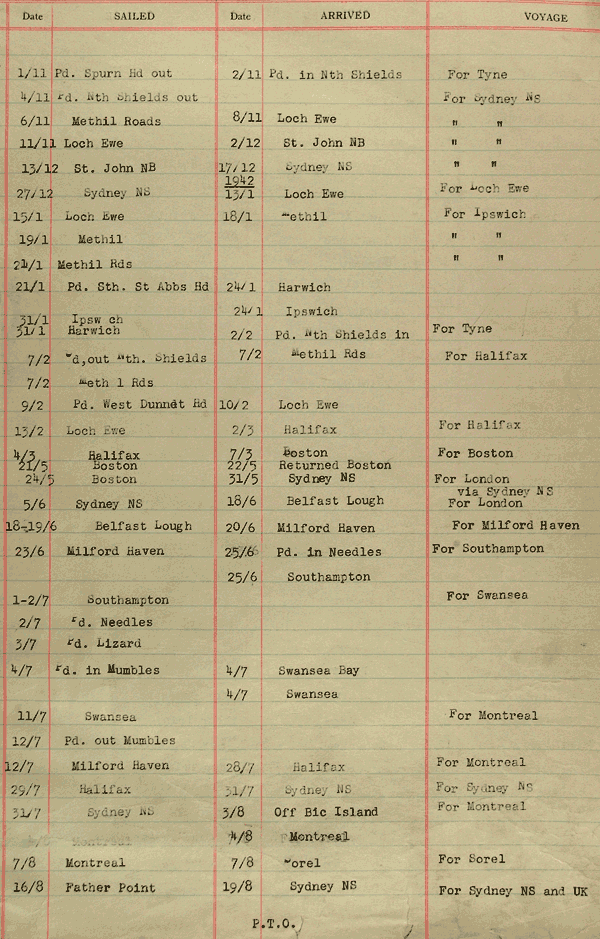 Date SAILED Date ARRIVED VOYAGE
1/11 Pd. Spurn Hd out 2/11 Pd. in Nth Shields For Tyne
4/11 Pd. Nth Shields out For Sydney NS
6/11 Methil Roads 8/11 Loch Ewe " "
11/11 Loch Ewe 2/12 St. John NB " "
13/12 St. John NB 17/12 Sydney NS " "
1942
27/12 Sydney NS 13/1 Loch Ewe For Loch Ewe
15/1 Loch Ewe 18/1 Methil For Ipswich
19/1 Methil " "
21/1 Methil Rds " "
21/1 Pd. Sth. St Abbs Hd 24/1 Harwich
24/1 Ipswich
31/1 Ipsw ch
31/1 Harwich 2/2 Pd. Nth Shields in For Tyne
7/2 Pd,out Nth. Shields 7/2 Methil Rds For Halifax
7/2 Meth l Rds
9/2 Pd. West Dunndt Hd 10/2 Loch Ewe
13/2 Loch Ewe 2/3 Halifax For Halifax
4/3 Halifax 7/3 Boston For Boston
21/5 Boston 22/5 Returned Boston
24/5 Boston 31/5 Sydney NS For London
via Sydney NS
5/6 Sydney NS 18/6 Belfast Lough For London
18-19/6 Belfast Lough 20/6 Milford Haven For Milford Haven
23/6 Milford Haven 25/6 Pd. in Needles For Southampton
25/6 Southampton
1-2/7 Southampton For Swansea
2/7 Pd. Needles
3/7 Pd. Lizard
4/7 Pd. in Mumbles 4/7 Swansea Bay
4/7 Swansea
11/7 Swansea For Montreal
12/7 Pd. out Mumbles
12/7 Milford Haven 28/7 Halifax For Montreal
29/7 Halifax 31/7 Sydney NS For Sydney NS
31/7 Sydney NS 3/8 Off Bic Island For Montreal
4/8 Montreal
7/8 Montreal 7/8 Sorel For Sorel
16/8 Father Point 19/8 Sydney NS For Sydney NS and UK
P.T.O.